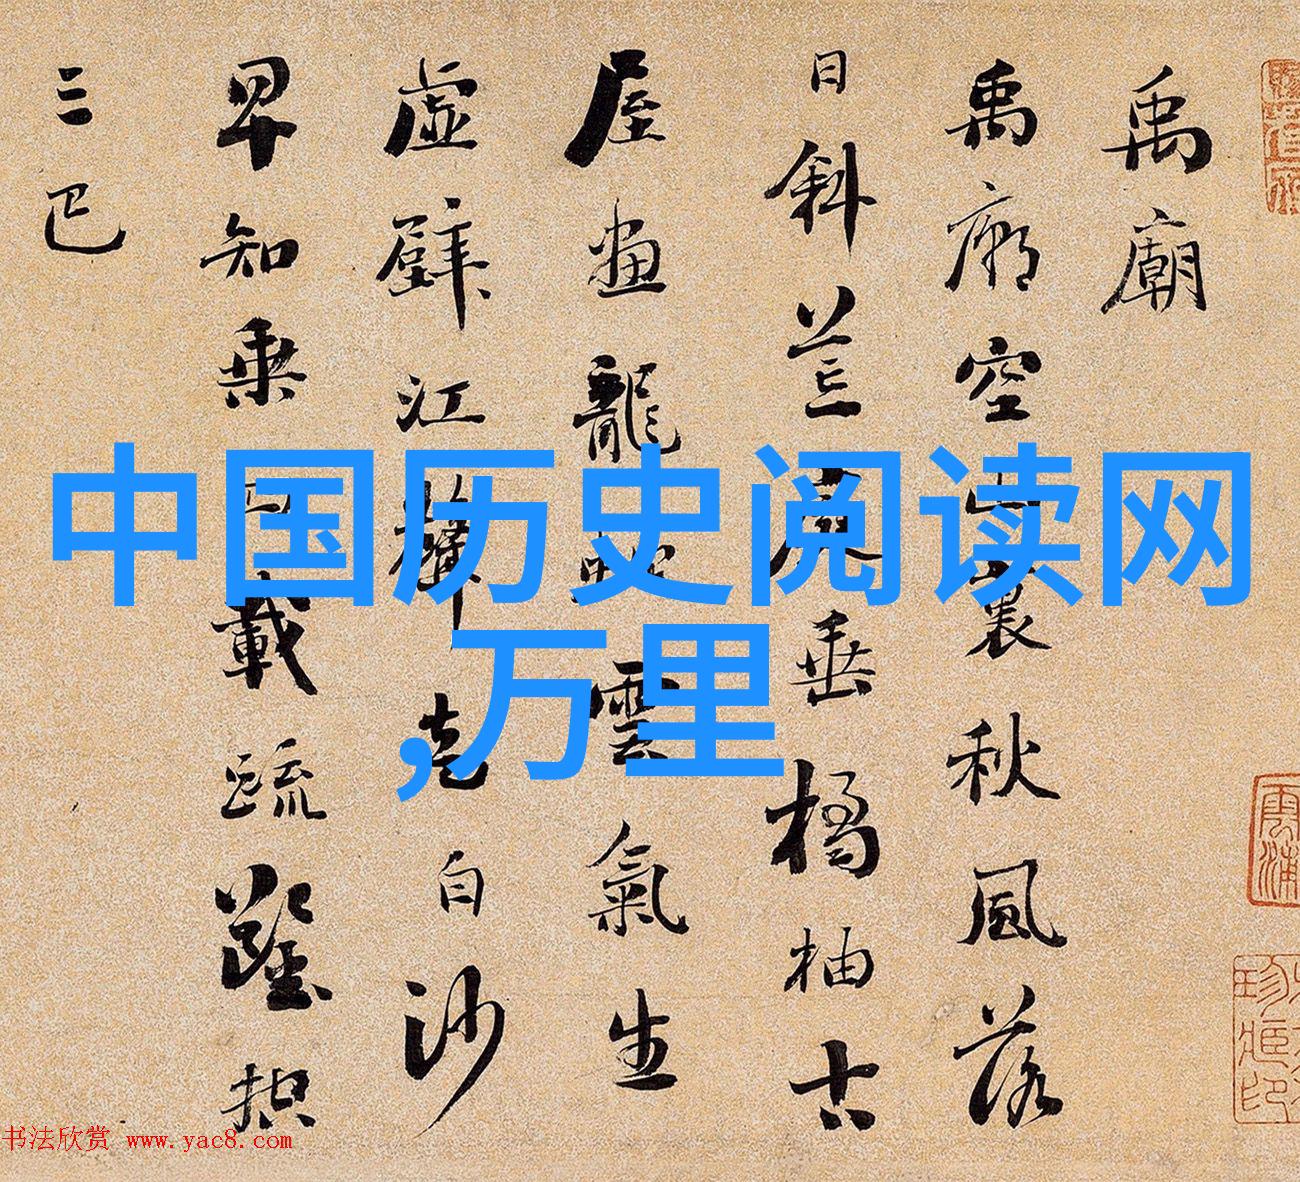 禹廟
禹廟空山裏秋風落
日斜荒庭垂橘柚古
屋畫龍蛇雲氣生
虛壁江聲走白沙
早知乘四載疏鑿控
三巴
中国历史阅读网
,万里
书法欣赏 www.yac8.com